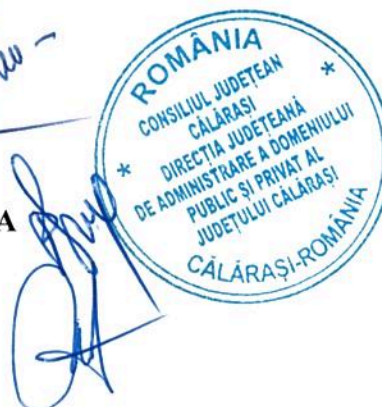 ROMÂNIA
CONSILIUL JUDEȚEAN
CĂLĂRAȘI
DIRECȚIA JUDEȚEANĂ
DE ADMINISTRARE A DOMENIULUI
PUBLIC ȘI PRIVAT AL
JUDEȚULUI CĂLĂRAȘI
CĂLĂRAȘI-ROMÂNIA
A